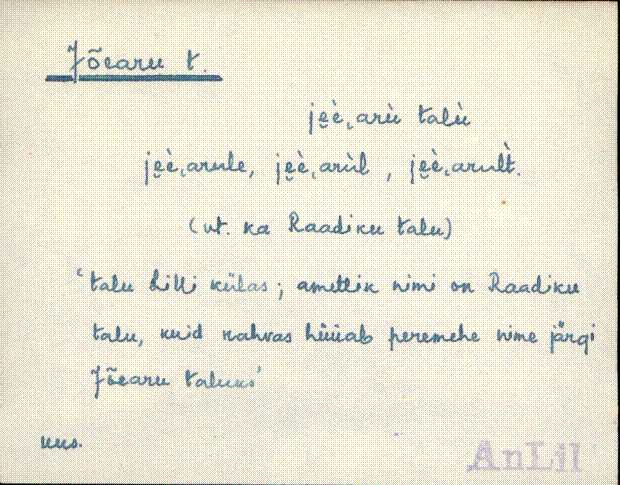 Jõearu t.
je̮è,arù talù
je̮è,arule, je̮è,arùl, je̮è,arult̀.
(vt. ka Raadiku talu)
'talu Lilli külas; ametlik nimi on Raadiku
talu, kuid rahvas hüüab peremehe nime järgi
Jõearu taluks'
uus.
AnLil